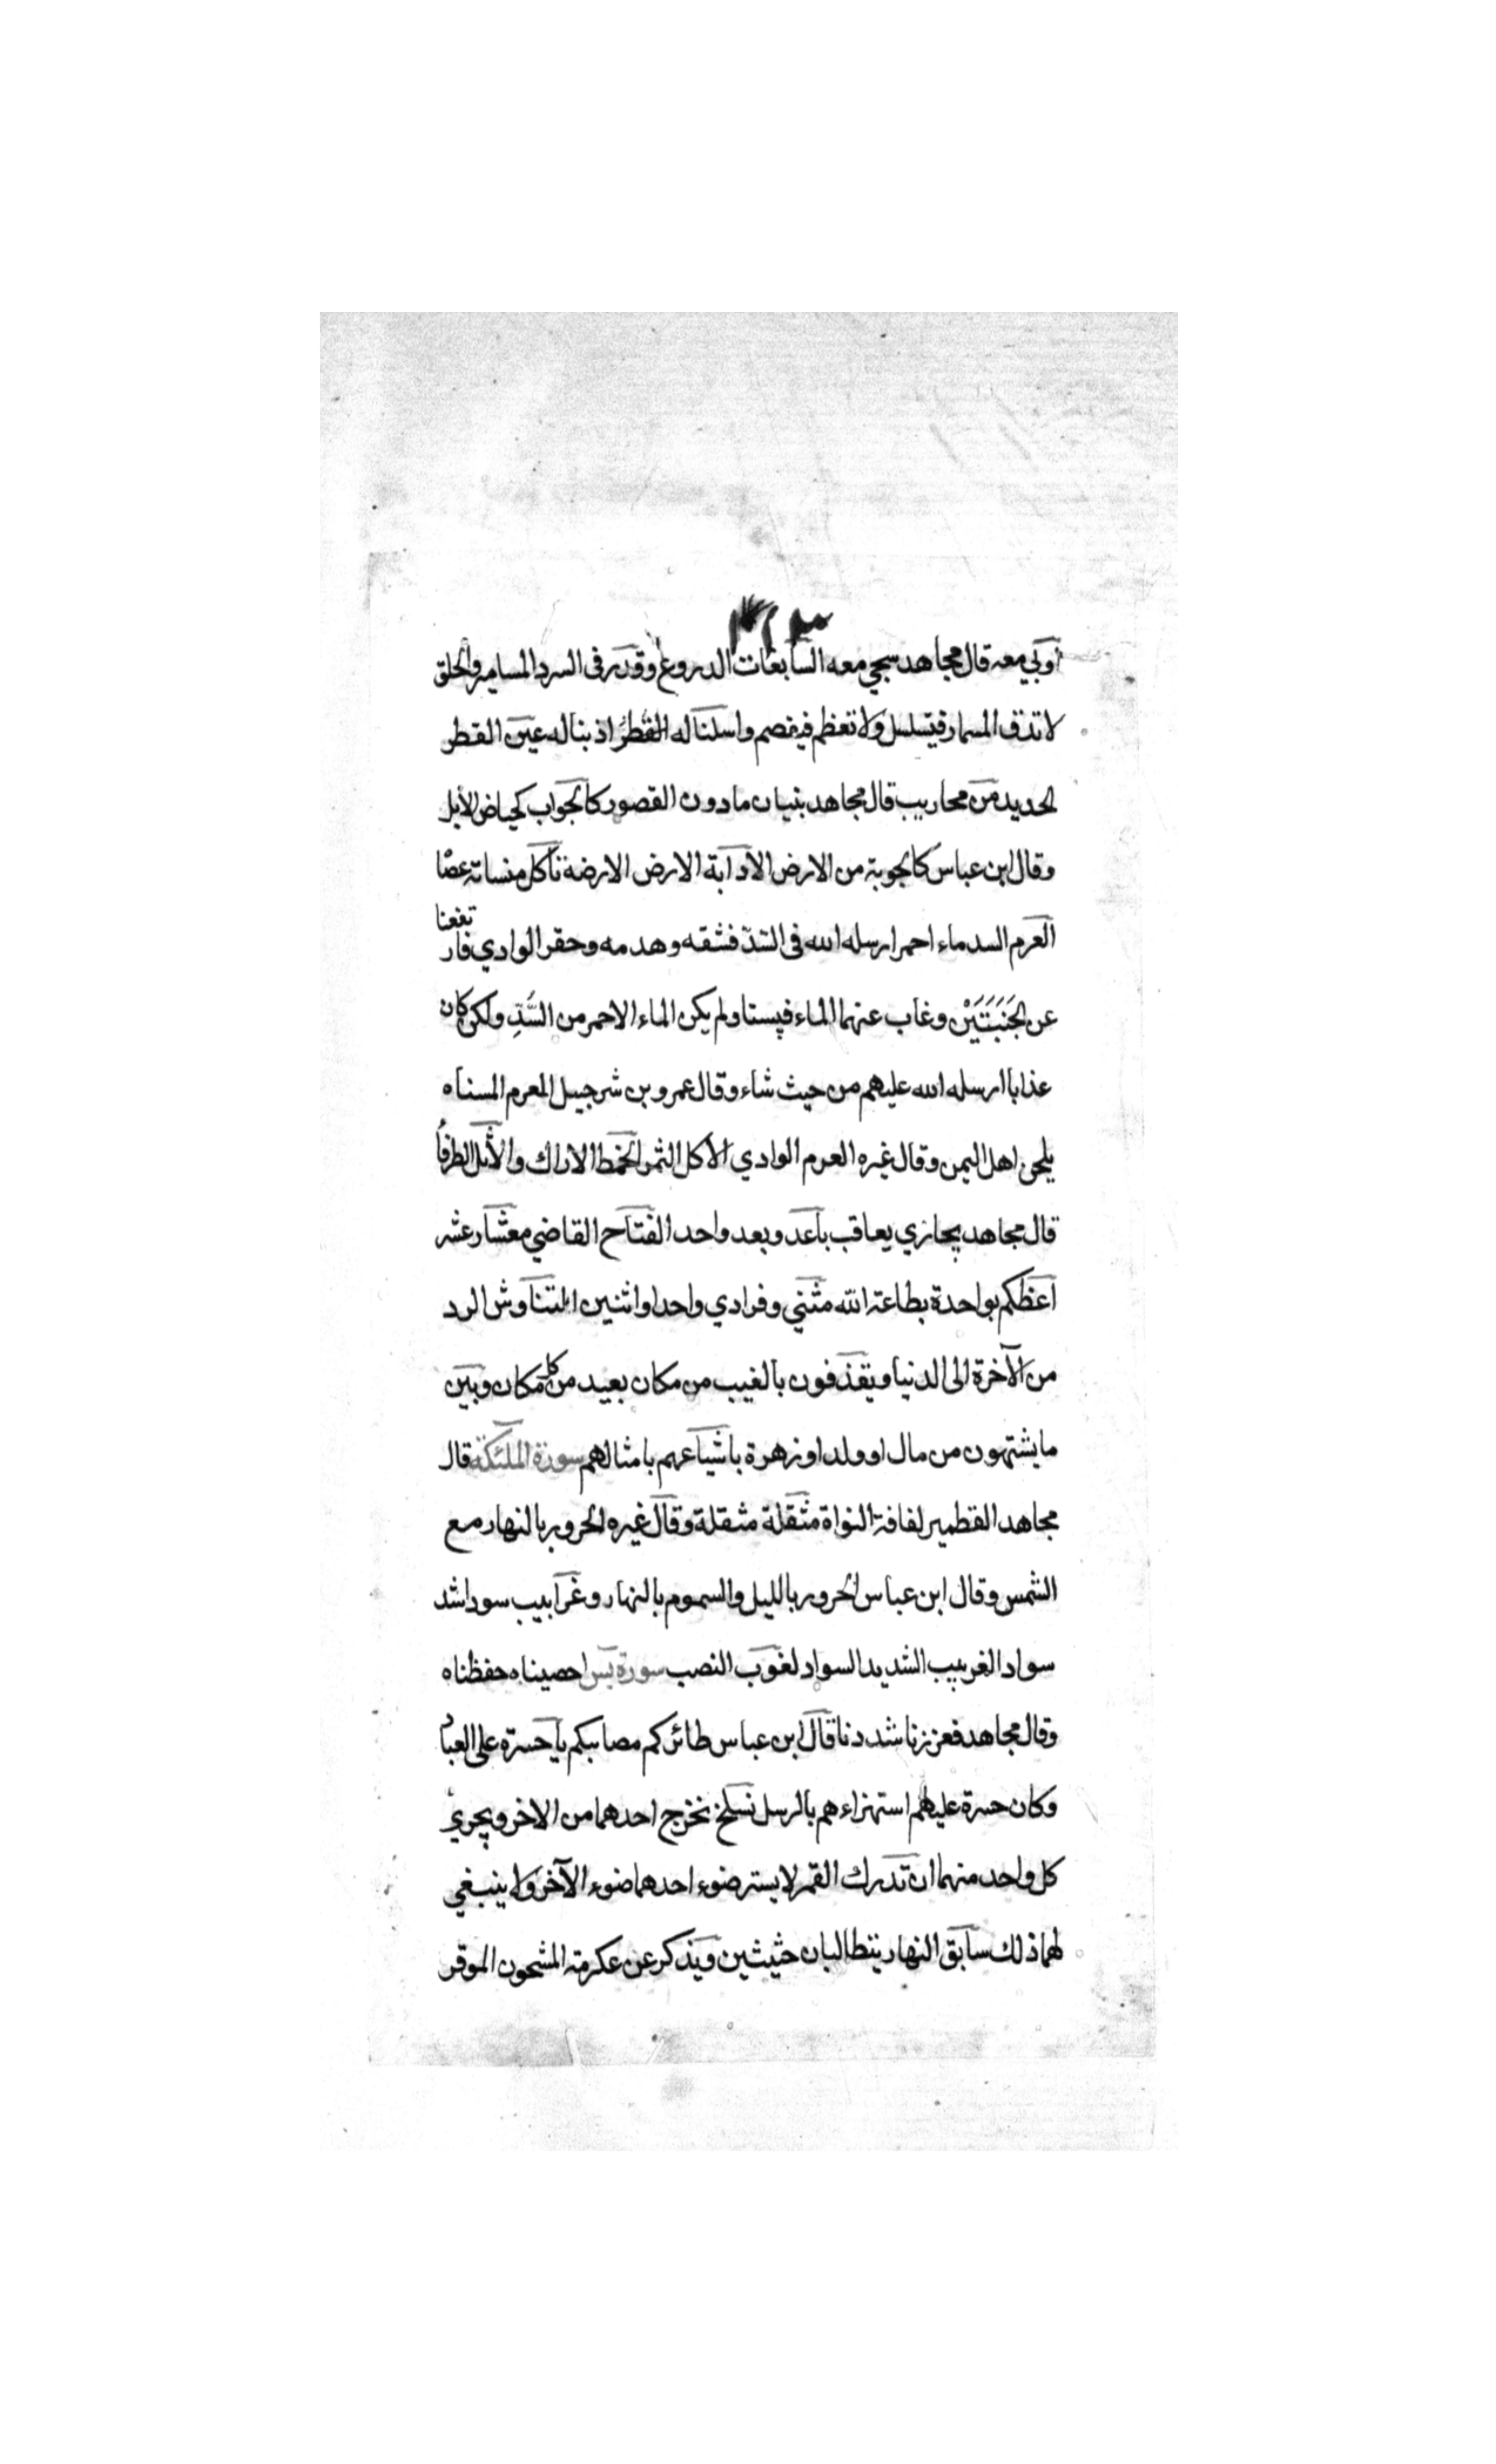 أوبي معه قال مجاهد سبحي معه السابغات الدروع وقدر فى السرد المسامير والحلق
لا تدق المسمار فيتسلسل ولا تعظم فيفصم واسلنا له القطر اذبنا له عين القطر
الحديد من محاريب قال مجاهد بنيان ما دون القصور كالجواب كحياض الأبل
وقال ابن عباس كالجوبة من الارض الا دآبة الارض الارضة تأكل منساته عصا
العرم السد ماء احمر ارسله الله فى السّدّ فشقه وهدمه وحفر الوادي فارتفعنا
عن الجَنَبَتَيْن وغاب عنهما الماء فيبستا ولم يكن الماء الاحمر من السَّدِّ ولكن كان
عذابا ارسله الله عليهم من حيث شاء وقال عمرو بن شرجيل العرم المسناه
بلحن اهل اليمن وقال غيره العرم الوادي الأكل الثمر الخمط الاراك والأثل الطرفأ
قال مجاهد يجازي يعاقب باعد وبعد واحد الفتاح القاضي معشار عشر
اعظكم بواحدة بطاعة الله مثني وفرادي واحد واثنين التناوش الرد
من الآخرة الى الدنيا ويقذفون بالغيب من مكان بعيد من كل مكان وبين
ما يشتهون من مال او ولد او زهرة باشياعهم بامثالهم سورة الملئكة قال
مجاهد القطمير لفافة النواة مثقلة مثقلة وقال غيره الحرور بالنهار مع
الشمس وقال ابن عباس الحرور بالليل والسموم بالنهار وغرابيب سود اشد
سواد الغربيب الشديد السواد لغوب النصب سورة يس احصيناه حفظناه
وقال مجاهد فعززنا شددنا قال ابن عباس طائركم مصائبكم يا حسرة على العباد
وكان حسرة عليهم استهزاءهم بالرسل نسلخ نخرج احدهما من الاخر ويجري
كل واحد منهما ان تدرك القمر لا يستر ضوء احدهما ضوء الآخر ولا ينبغي
لهما ذلك سابق النهار يتطالبان حثيثين ويذكر عن عكرمة المشحون الموقر